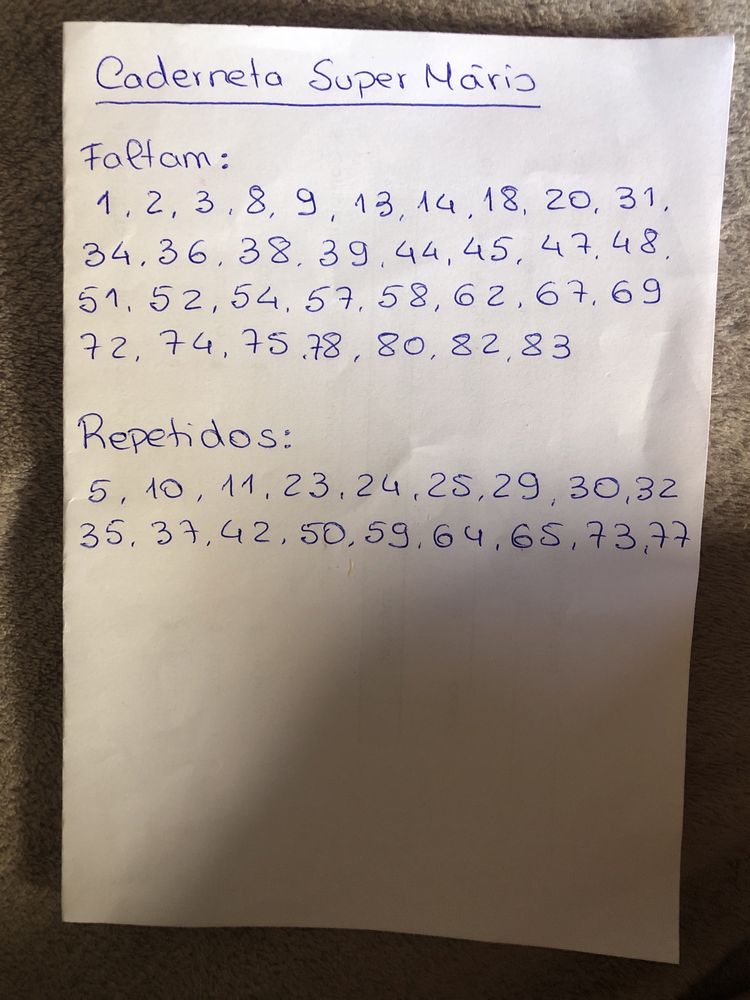 Caderneta Super Mário
Faltam:
1, 2, 3, 8, 9, 13, 14, 18, 20, 31,
34, 36, 38, 39, 44, 45, 47, 48,
51, 52, 54, 57, 58, 62, 67, 69
72, 74, 75, 78, 80, 82, 83
Repetidos:
5, 10, 11, 23, 24, 25, 29, 30, 32
35, 37, 42, 50, 59, 64, 65, 73, 77